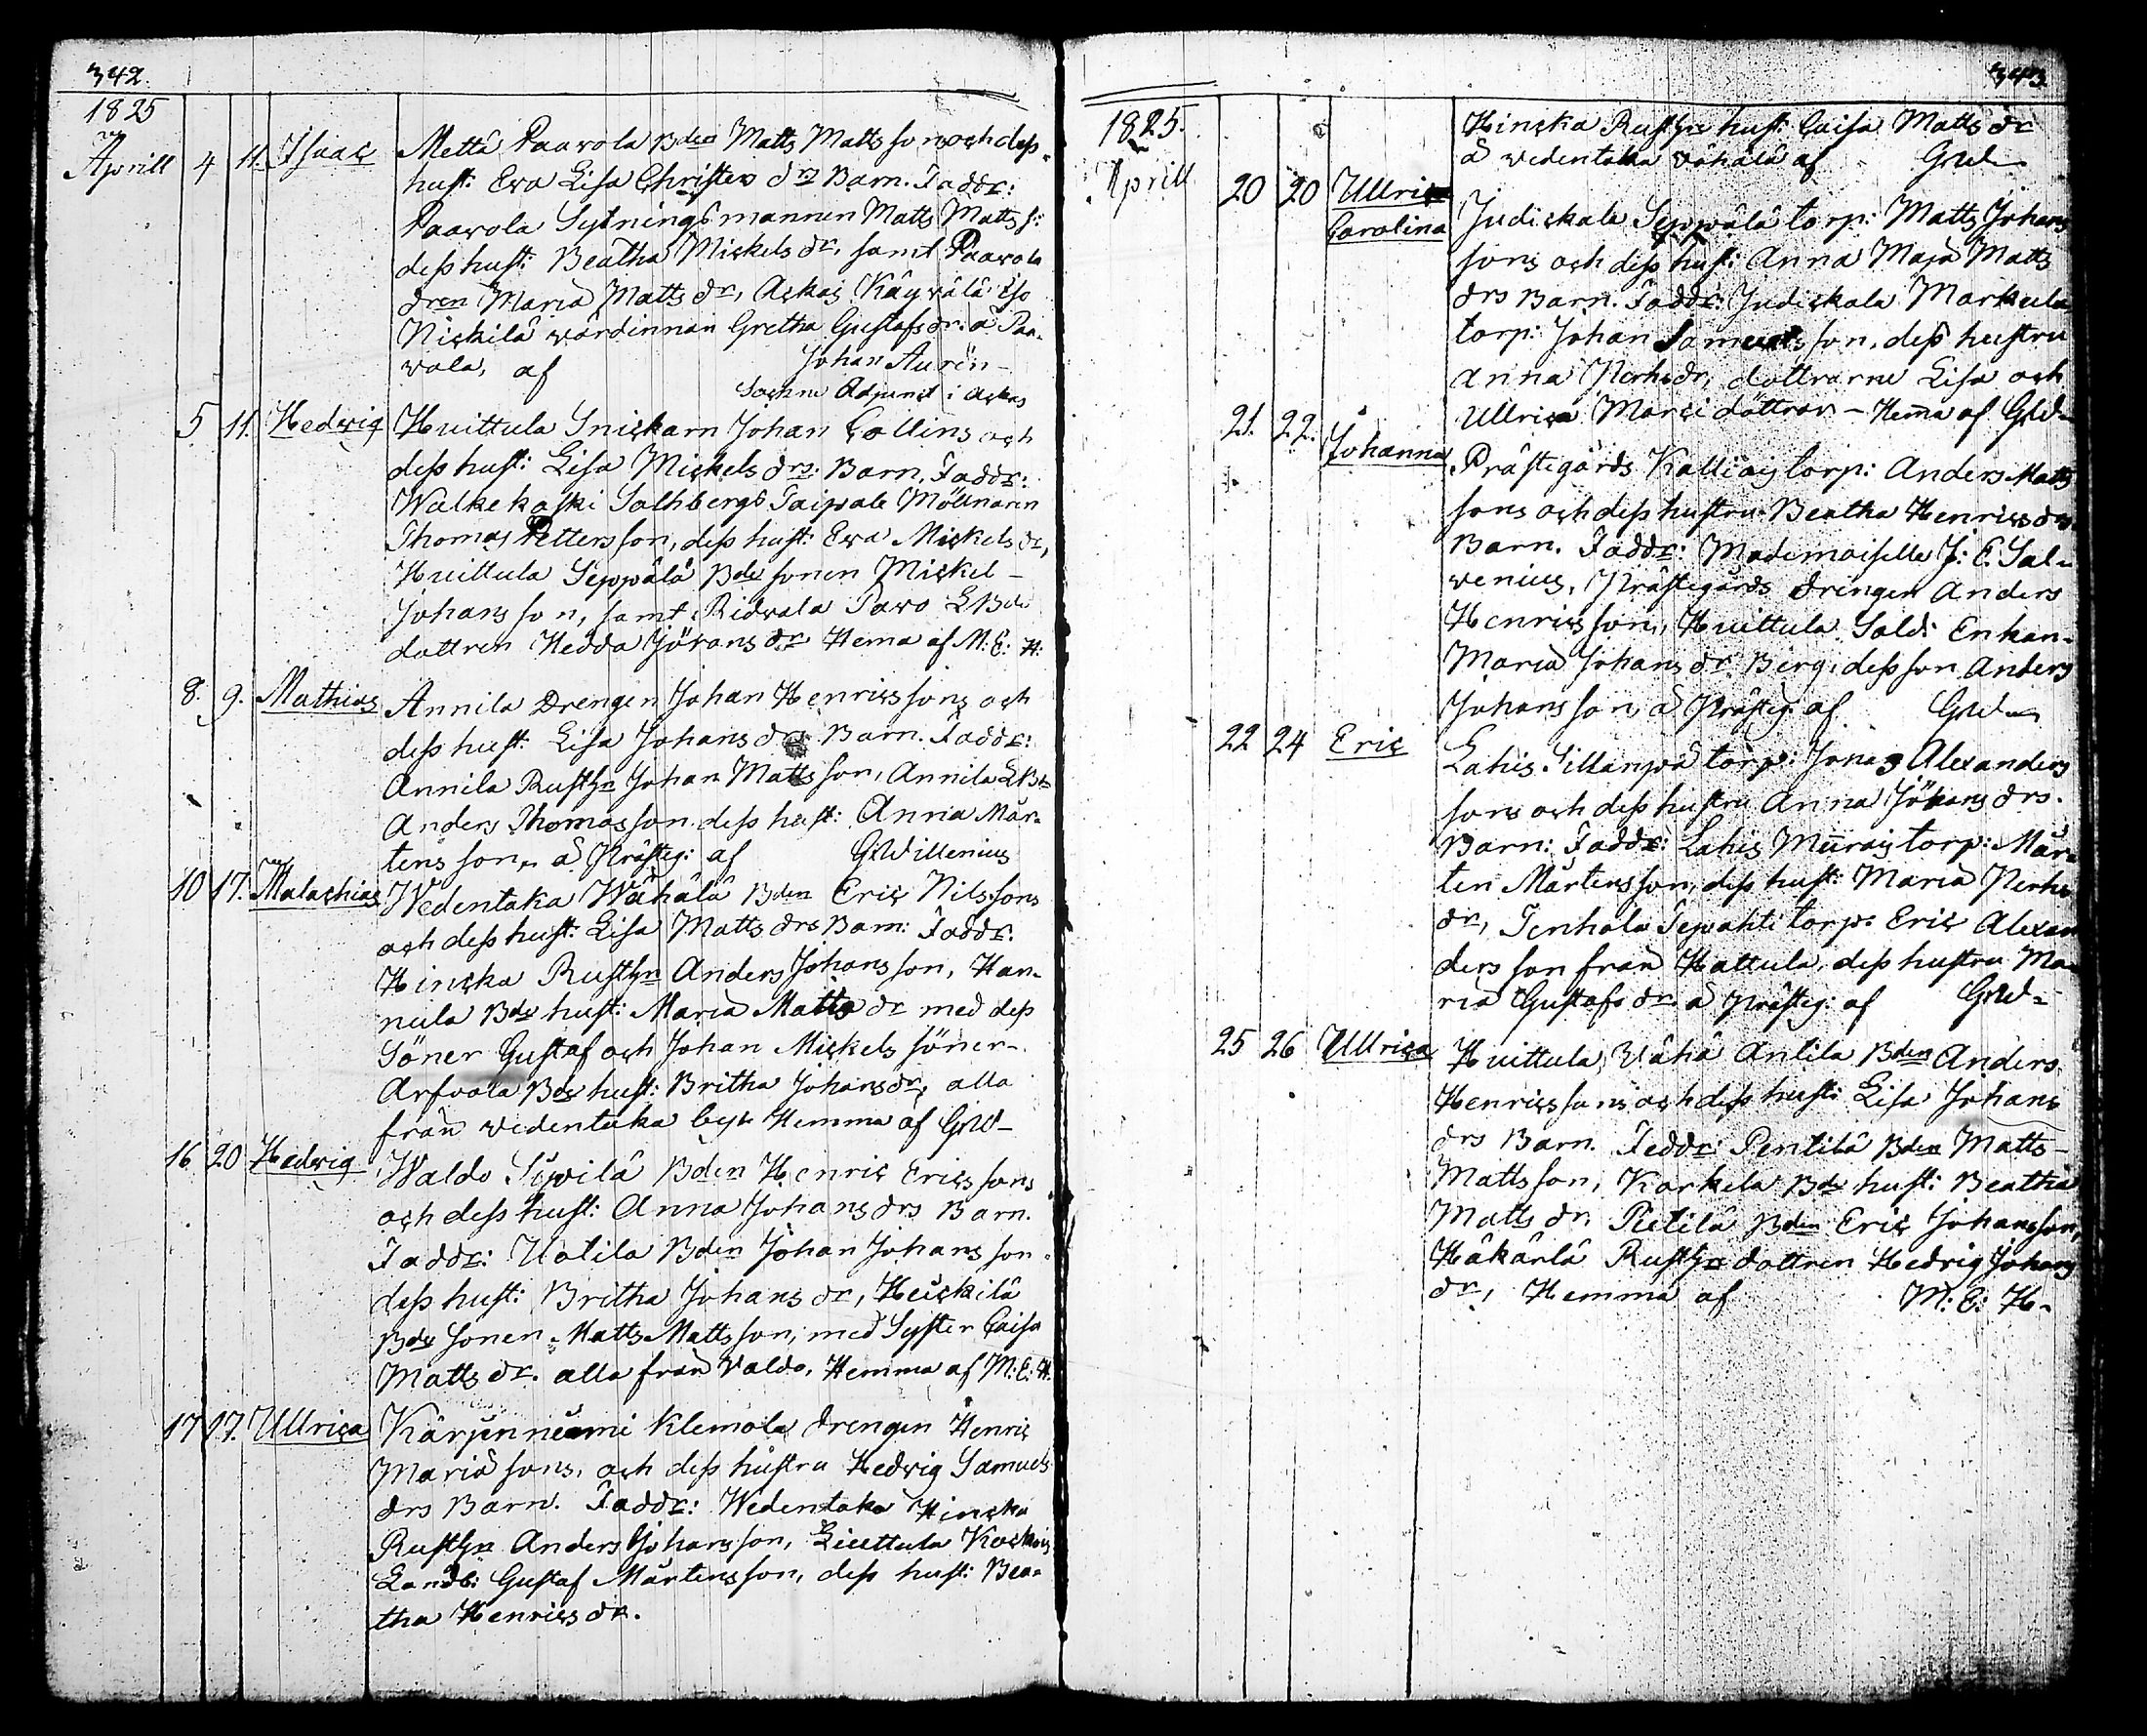 342.
1825
Aprill 4 11. Isaac Mettâ Paavola Bden Matts Matts sons och dess
hust: Eva Lisa Christers drs Barn. Faddr:
Paavola Sytningsmannen Matts Matts s:
dess hust: Beatha Mickels dr, samt Paavola
dren Maria Matts dr, Askas Käyvälä iso
Nickilä wärdinnan Gretha Gustafs dr. å Paa-
vola, af Johan Aurén
Sockne Adjunct i Askas
5 11. Hedvig Huittula Snickarn Johan Collins och
dess hust: Lisa Mickels drs. Barn. Faddr:
Walkekoski Salhbergs Taipale Möllnaren
Thomas Pettersson, dess hust: Eva Mickels dr,
Huittula Seppälä Bde sonen Mickel
Johansson, samt Ridvala Pavo LBde
dottren Hedda Jörans dr Hema af M: E: H:
8. 9. Mathias Annila Drengen Johan Henricssons och
dess hust: Lisa Johans drs Barn. Faddr:
Annila Rusthn Johan Mattsson, Annila LBde
Anders Thomasson dess hust: Anna Mår-
tensson, å Prästeg: af G: Willenius
10 17. Malachias Wedentaka Wähälä Bden Eric Nilssons
och dess hust: Lisa Matts drs Barn: Faddr.
Hincka Rusthn Anders Johansson, Han-
nula Bde hust: Maria Matts dr med dess
Söner Gustaf och Johan Mickels söner
Arfvola Bde hust: Britha Johans dr, alla
från wedentaka by. Hemma af GW
16 20 Hedvig Waldo Sipilä Bden Henric Ericssons
och dess hust: Anna Johans drs Barn.
Faddr: Uotila Bden Johan Johansson
dess hust: Britha Johans dr, Heickilä
Bde Sonen Matts Mattsson, med Syster Caisa
Matts dr. alla från Valdo, Hemma af M: E: H.
17 17. Ullrica Kärjenniemi Klemola drengen Henric
Maria sons, och dess hustru Hedvig Samuels
drs Barn. Faddr: Wedentaka Hincka
Rusthn Anders Johansson, Liuttula Koskois
Landb: Gustaf Mårtensson, dess hust: Bea-
tha Henrics dr.
343.
1825.
Aprill
Hincka Rusthn hust: Caisa Matts dr
å wedentaka Vähälä af GW
20 20 Ullrica Carolina Judickala Seppälä torp: Matts Johans
sons och dess hust: Anna Maja Matts
drs Barn. Faddr: Judickala Markula
torp: Johan Samuelsson, dess hustru
Anna Perhs dr, döttrarne Lisa och
Ullrica Marci döttrar – Hema af GW
21. 22. Johanna Prästegårds Kallioys torp: Anders Matts
sons och dess hustru Beatha Henrics drs
Barn. Faddr: Mademoiselle J: E. Sal-
venius, Prästegårds drengen Anders
Henricsson, Huittula Sold: Enkan
Maria Johans dr. Berg, dess son Anders
Johansson, å Prästeg: af GW
22 24 Eric Lahis Sillanpää torp: Jonas Alexanders
sons och dess hustru Anna Johans drs.
Barn: Faddr: Lahis Murois torp: Mår-
ten Mårtensson, dess hust: Maria Perhs
dr, Tenhola Sepahti torp: Eric Alexan
dersson från Hattula, dess hustru Ma-
ria Gustafs dr. å Prästeg: af GW
25 26 Ullrica Huittula, Vähä Anlila Bden Anders
Henricssons och dess hust: Lisa Johans
drs Barn. Faddr: Pentilä Bden Matts
Mattsson, Korkela Bde hust: Beatha
Matts dr. Pietilä Bden Eric Johansson,
Häkärlä Rusthn dottren Hedvig Johans
dr, Hemma af M: E: H.